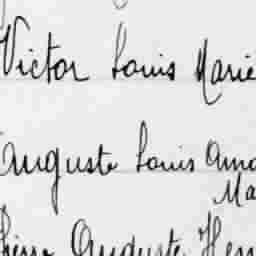 Victor Louis Marie
Auguste Louis Ama
Ma
Pierre Auguste Hen